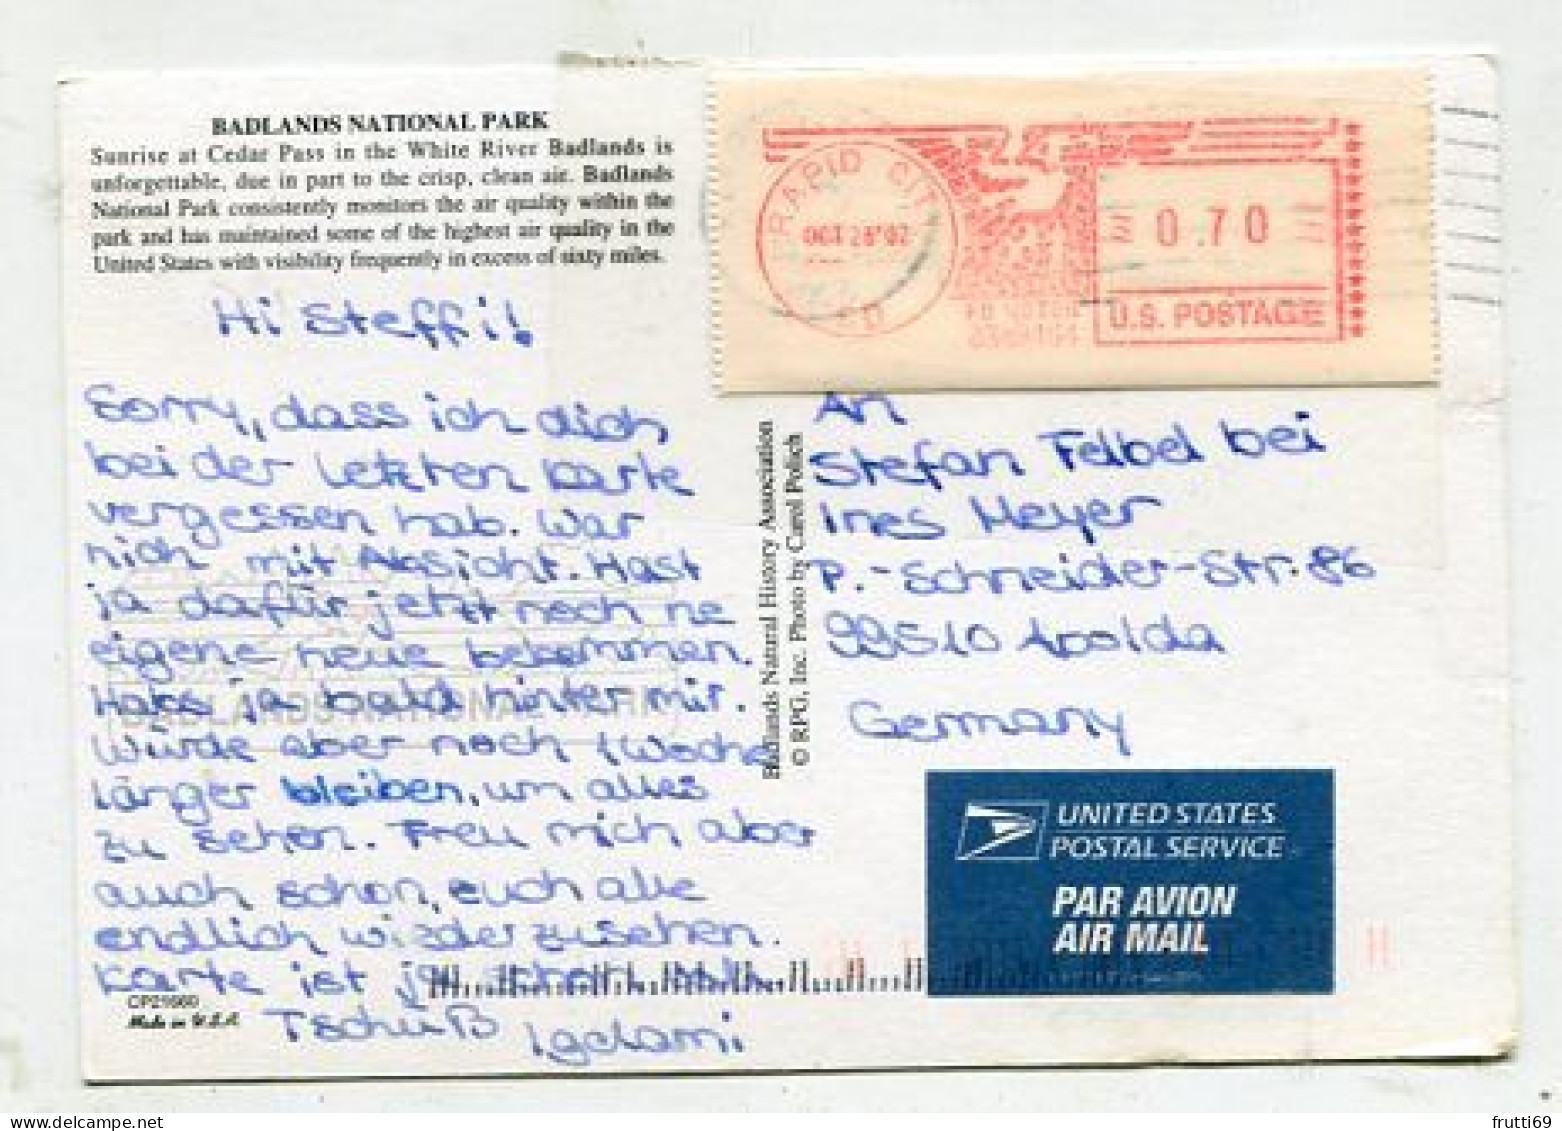 BADLANDS NATIONAL PARK
Sunrise at Cedar Pass in the White River Badlands is
unforgettable, due in part to the crisp, clean air. Badlands
National Park consistently monitors the air quality within the
park and has maintained some of the highest air quality in the
United States with visibility frequently in excess of sixty miles.
Hi Steffi!
Sorry, dass ich dich
bei der letzten Karte
vergessen hab. War
nich mit Absicht. Hast
ja dafür jetzt noch ne
eigene neue bekommen.
Hass ja bald hinter mir.
Würde aber noch 1 Woche
länger bleiben, um alles
zu sehen. Freu mich aber
auch schon, euch alle
endlich wiederzusehen.
Karte ist ja schon
Tschüß
CP21560
Made in U.S.A.
Badlands Natural History Association
© RPG, Inc. Photo by Carol Polich
RAPID CITY
OCT 28'02
0.70
U.S. POSTAGE
An
Stefan Felbel bei
Ines Meyer
P.-Schneider-Str. 86
99510 Apolda
Germany
UNITED STATES
POSTAL SERVICE
PAR AVION
AIR MAIL
frutti69